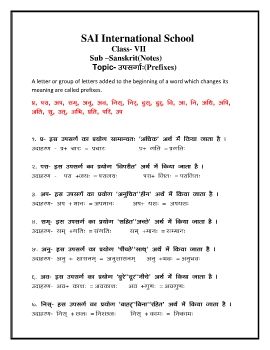 SAI International School
Class- VII
Sub –Sanskrit(Notes)
Topic- उपसर्गाः(Prefixes)
A letter or group of letters added to the beginning of a word which changes its
meaning are called prefixes.
प्र, परा, अप, सम्, अनु, अव, निस्, निर्, दुस्, दुर्, वि, आ, नि, अधि, अपि,
अति, सु, उत्, अभि, प्रति, परि, उप
१. प्र- इस उपसर्ग का प्रयोग सामान्यतः 'अधिक' अर्थ में किया जाता है ।
उदाहरण - प्र+ भावः = प्रभावः प्र+ गति = प्रगतिः
२. परा- इस उपसर्ग का प्रयोग 'विपरीत' अर्थ में किया जाता है ।
उदाहरण - परा +जयः = पराजयः परा+ जितः = पराजितः
३. अप- इस उपसर्ग का प्रयोग 'अनुचित''हीन' अर्थ में किया जाता है ।
उदाहरण- अप + मानः = अपमानः अप+ यशः = अपयशः
४. सम्- इस उपसर्ग का प्रयोग 'सहित''अच्छे' अर्थ में किया जाता है ।
उदाहरण- सम् +गतिः = संगतिः सम् +मानः = सम्मानः
५. अनु- इस उपसर्ग का प्रयोग 'पीछे''साथ' अर्थ में किया जाता है ।
उदाहरण- अनु + शासनम् = अनुशासनम् अनु +भवः = अनुभवः
६. अव- इस उपसर्ग का प्रयोग 'बुरे''दूर''नीचे' अर्थ में किया जाता है ।
उदाहरण- अव+ काशः = अवकाशः अव +गुणः = अवगुणः
७. निस्- इस उपसर्ग का प्रयोग 'बाहर''बिना''रहित' अर्थ में किया जाता है ।
उदाहरण- निस् + छलः = निश्छलः निस् + कामः = निष्कामः